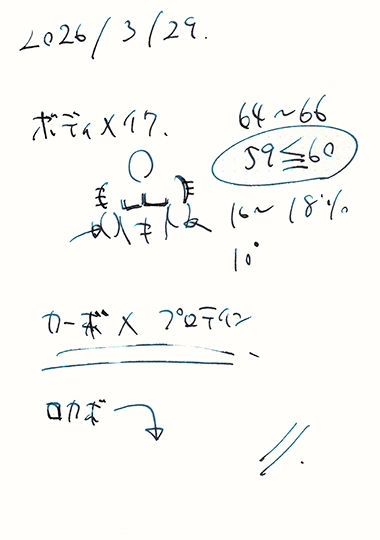 2026/3/29.
ボディメイク.
64~66
59≦60
16~18%
10°
カーボ×プロテイン
ロカボ